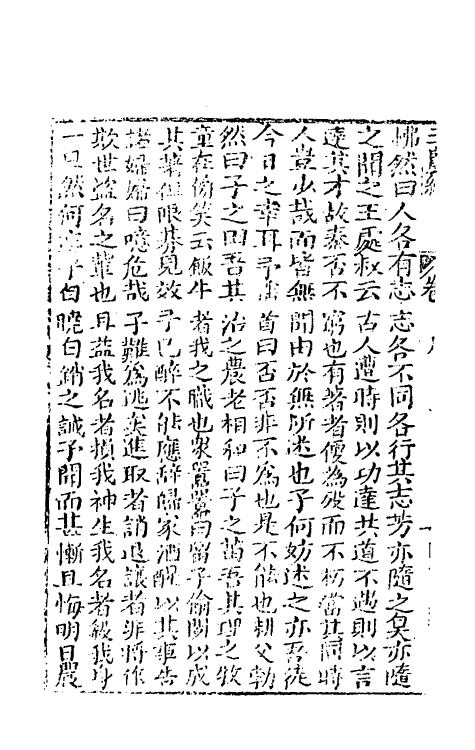 怫然曰人各有志志各不同各行其志芳亦隨之臭亦隨
之聞之王處叔云古人遭時則以功達其道不遇則以言
達其才故泰否不窮也有著者便為歿而不朽當其同時
人豈少哉而皆無聞由於無所述也子何妨述之亦吾徒
今日之幸耳予首曰否否非不為也是不能也耕父勃
然曰子之田吾其治之農老相和曰子之圃吾其理之牧
童在傍笑云飯牛者我之職也衆囂囂曰留子偷閒以成
其業但眼其見效予已醉不能應辭歸家酒醒以其事告
諸婦婦曰噫危哉子難為逃矣進取者誚退讓者非將作
欺世盜名之輩也且益我名者損我神生我名者殺我身
一旦然何子白曉白銷之誠予聞而甚慚且悔明日農